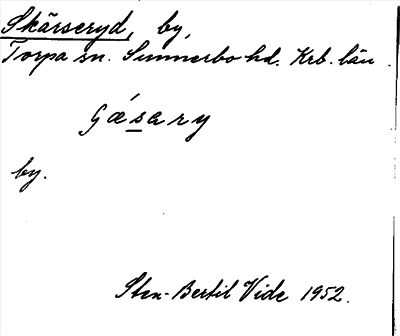 Skärseryd, by,
Torpa sn. Sunnerbo hd. Krb. län.
by.
Sten-Bertil Vide 1952.